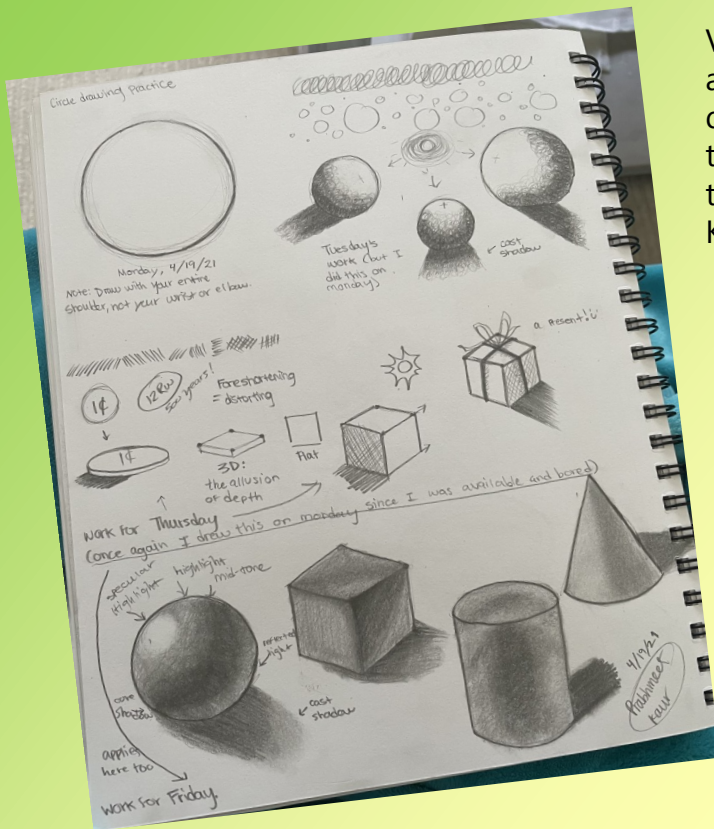 Circle drawing practice
Monday, 4/19/21
NOTE: Draw with your entire
shoulder, not your wrist or elbow.
Tuesday's
work (but I
did this on
monday)
cast
shadow
a present!
1¢
years!
Foreshortening
= distorting
1¢
3D:
the allusion
of depth
Flat
work for Thursday
(once again I drew this on monday since I was available and bored)
specular
highlight
highlight
mid-tone
reflected
light
core
shadow
cast
shadow
applies
here too
work for Friday.
4/19/21
Prabhmeet
Kaur